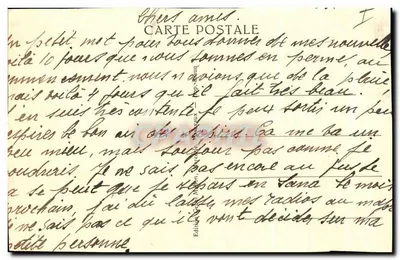 Chers amis. I
CARTE POSTALE
un petit mot pour vous donner de mes nouvelle
voilà 10 jours que nous sommes en perme, au
commencement, nous n'avions que de la pluie
mais voilà 4 jours qu'il fait très beau.
en suis très contente je peux sortir un peu
respirer le bon air des sapins. Ça me va un
peu mieu, mais toujour pas comme je
voudrais, je ne sais pas encore au juste
ça se peut que je repars en Sana le mois
prochain, j'ai dû laisser mes radios au
je ne sais pas ce qu'ils vont decider sur ma
petite personne.